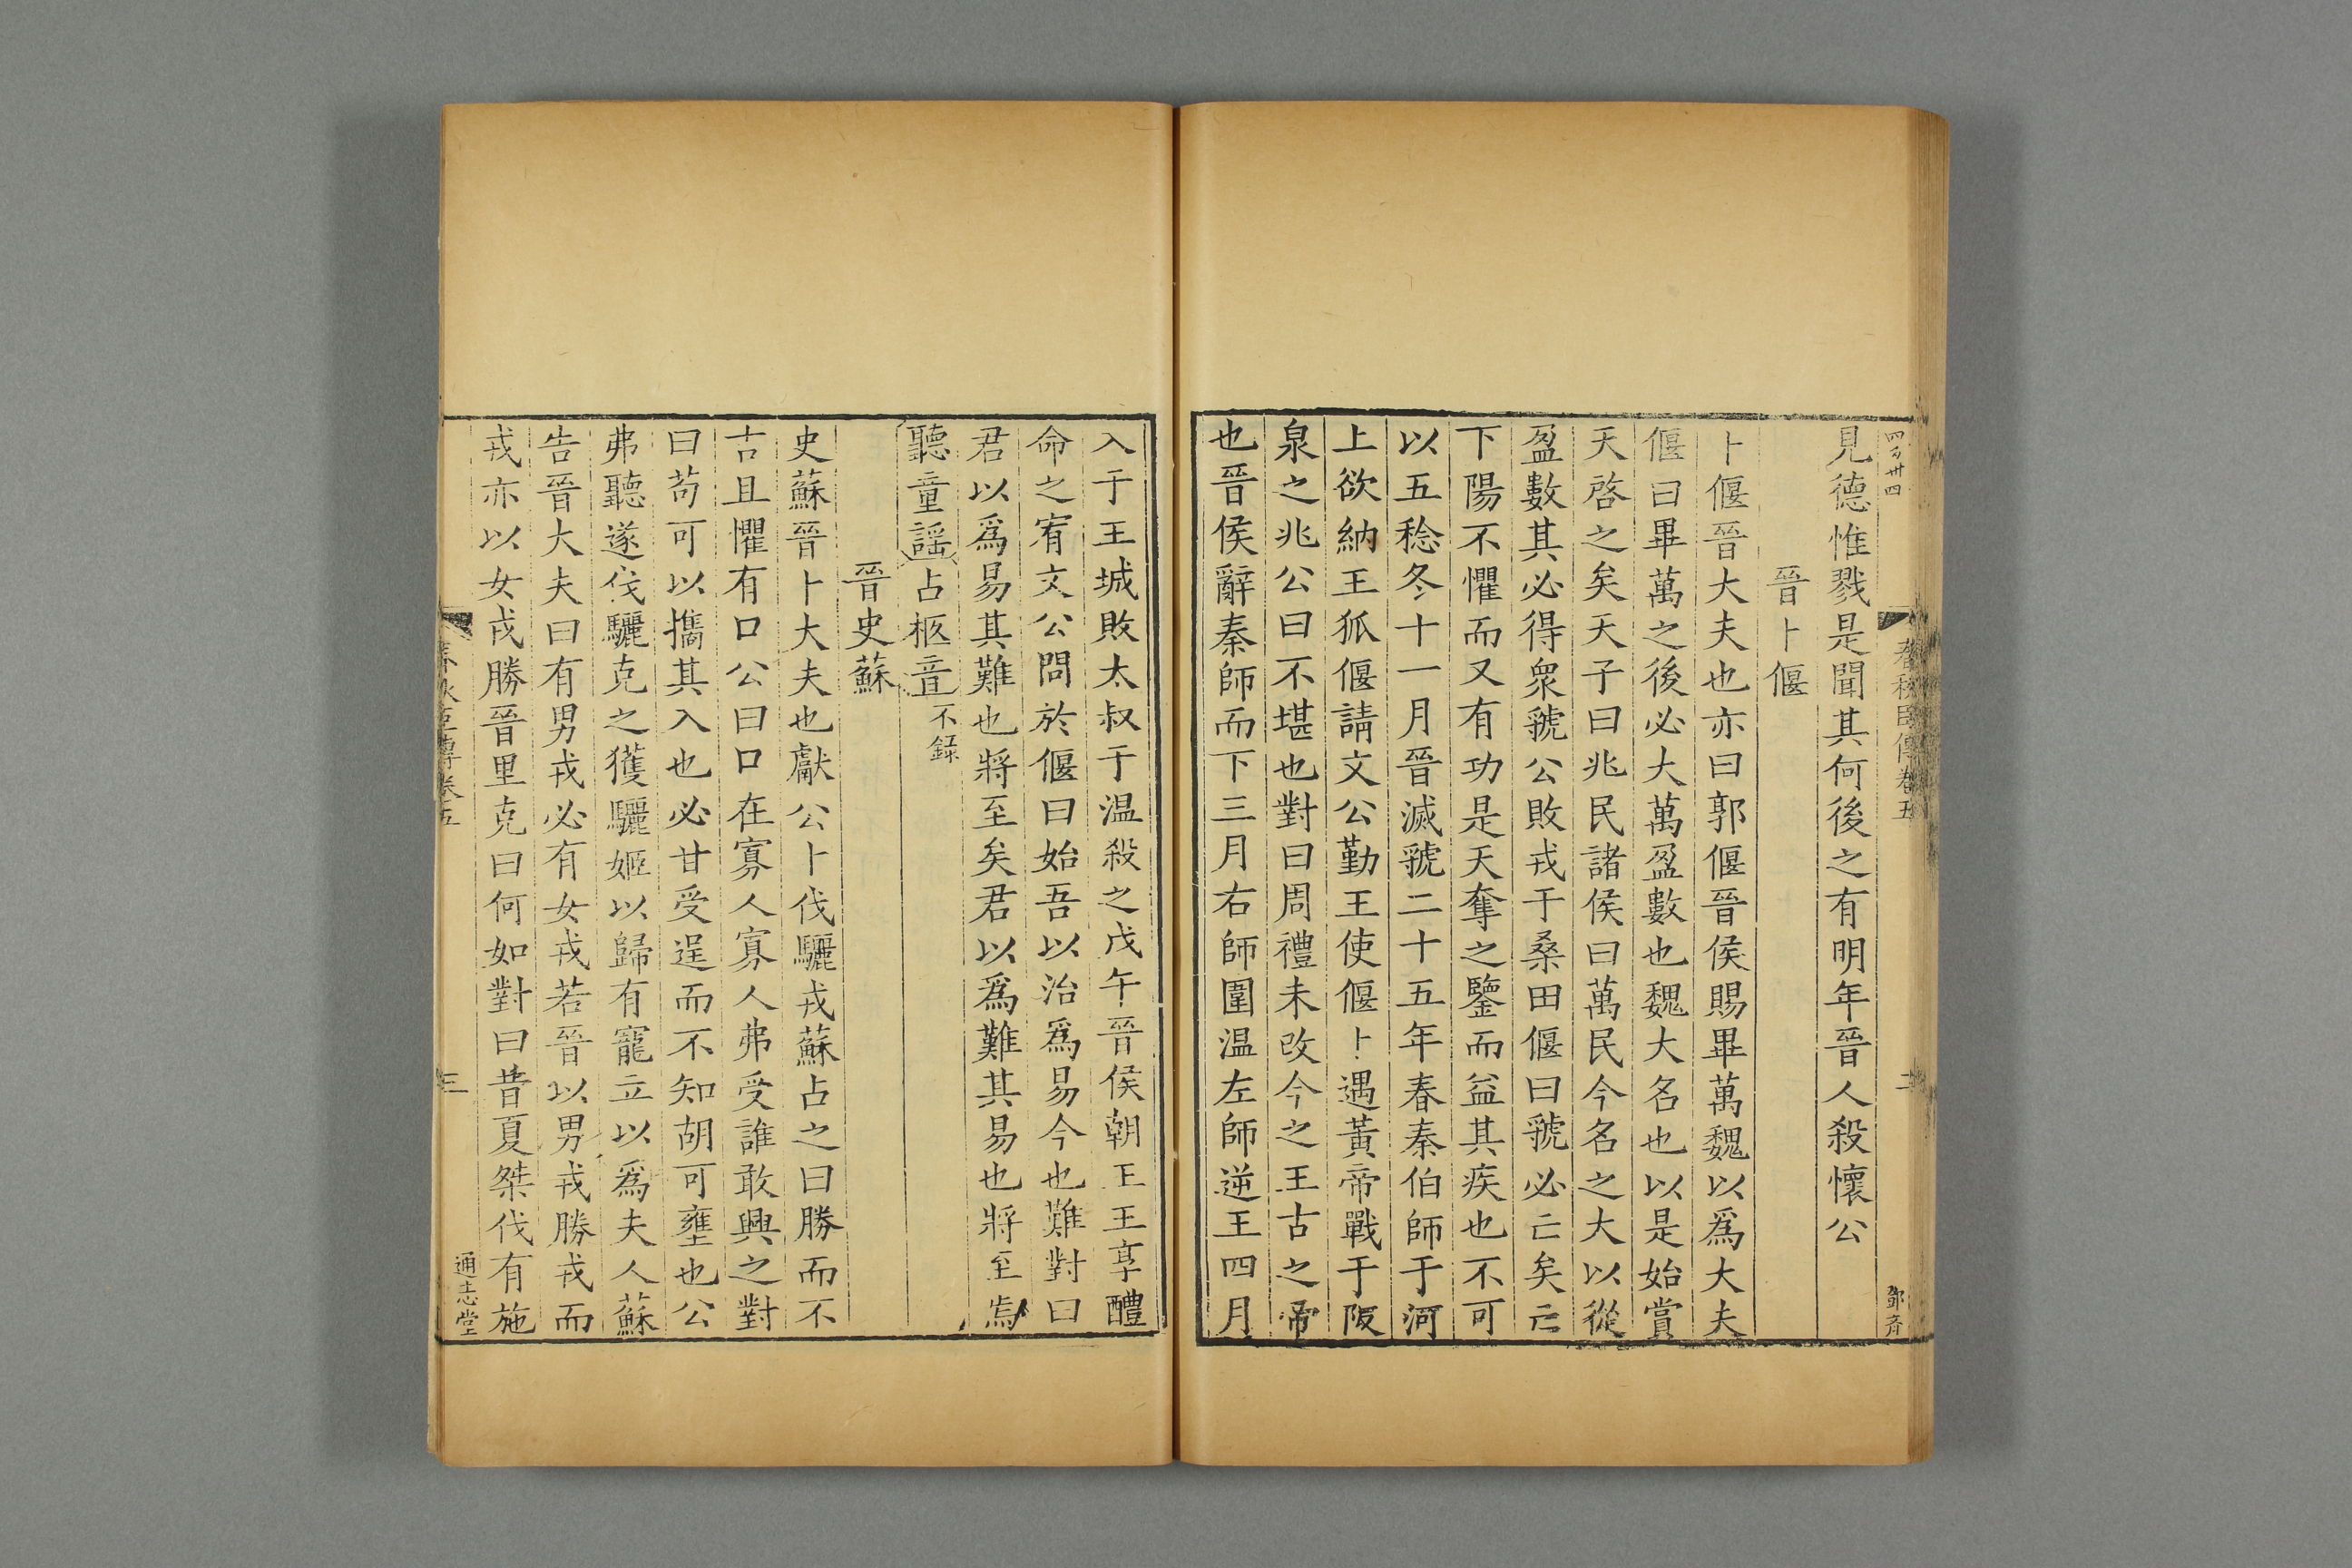 四百卅四
春秋臣傳卷五
二
鄧斉
見德惟戮是聞其何後之有明年晉人殺懷公
晉卜偃
卜偃晉大夫也亦曰郭偃晉侯賜畢萬魏以爲大夫
偃曰畢萬之後必大萬盈數也魏大名也以是始賞
天啓之矣天子曰兆民諸侯曰萬民今名之大以從
盈數其必得衆虢公敗戎于桑田偃曰虢必亡矣亡
下陽不懼而又有功是天奪之鑒而益其疾也不可
以五稔冬十一月晉滅虢二十五年春秦伯師于河
上欲納王狐偃請文公勤王使偃卜遇黃帝戰于阪
泉之兆公曰不堪也對曰周禮未改今之王古之帝
也晉侯辭秦師而下三月右師圍温左師逆王四月
入于王城敗太叔于温殺之戊午晉侯朝王王享醴
命之宥文公問於偃曰始吾以治爲易今也難對曰
君以爲易其難也將至矣君以爲難其易也將至焉
聽童謡占柩音不錄
晉史蘇
史蘇晉卜大夫也獻公卜伐驪戎蘇占之曰勝而不
古且懼有口公曰口在寡人寡人弗受誰敢興之對
曰苟可以攜其入也必甘受逞而不知胡可壅也公
弗聽遂伐驪克之獲驪姬以歸有寵立以爲夫人蘇
告晉大夫曰有男戎必有女戎若晉以男戎勝戎而
戎亦以女戎勝晉里克曰何如對曰昔夏桀伐有施
春秋臣傳卷五
三
通志堂